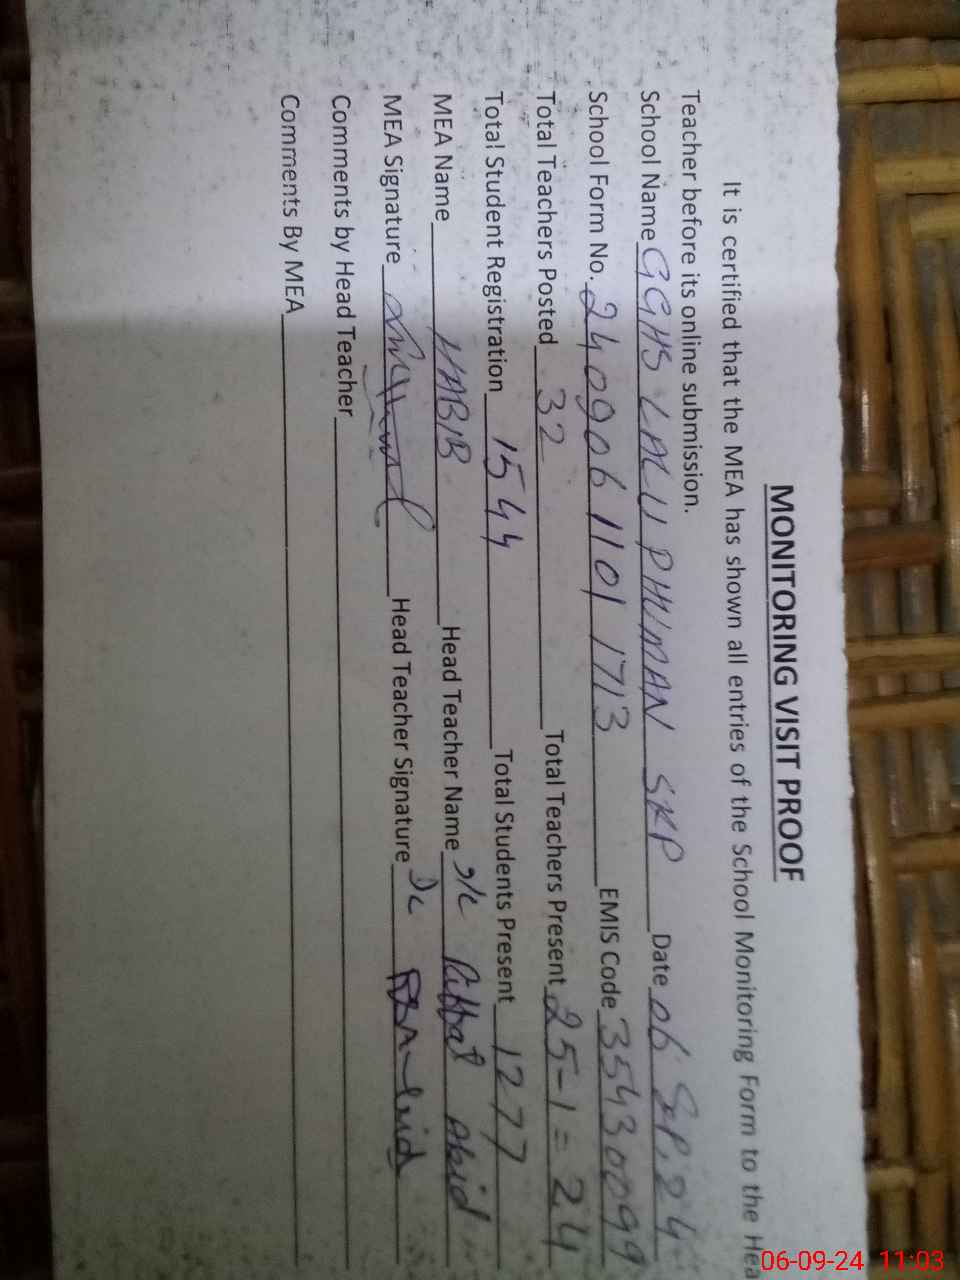 MONITORING VISIT PROOF
It is certified that the MEA has shown all entries of the School Monitoring Form to the Hea
Teacher before its online submission.
School Name GGHS LALU PHUMAN SKP Date 06 SP, 24
School Form No. 2409061101713 EMIS Code 35430099
Total Teachers Posted 32 Total Teachers Present 25-1=24
Total Student Registration 1544 Total Students Present 1277
MEA Name HABIB Head Teacher Name I/C Riffat Abid
MEA Signature Head Teacher Signature
Comments by Head Teacher
Comments By MEA
06-09-24 11:03